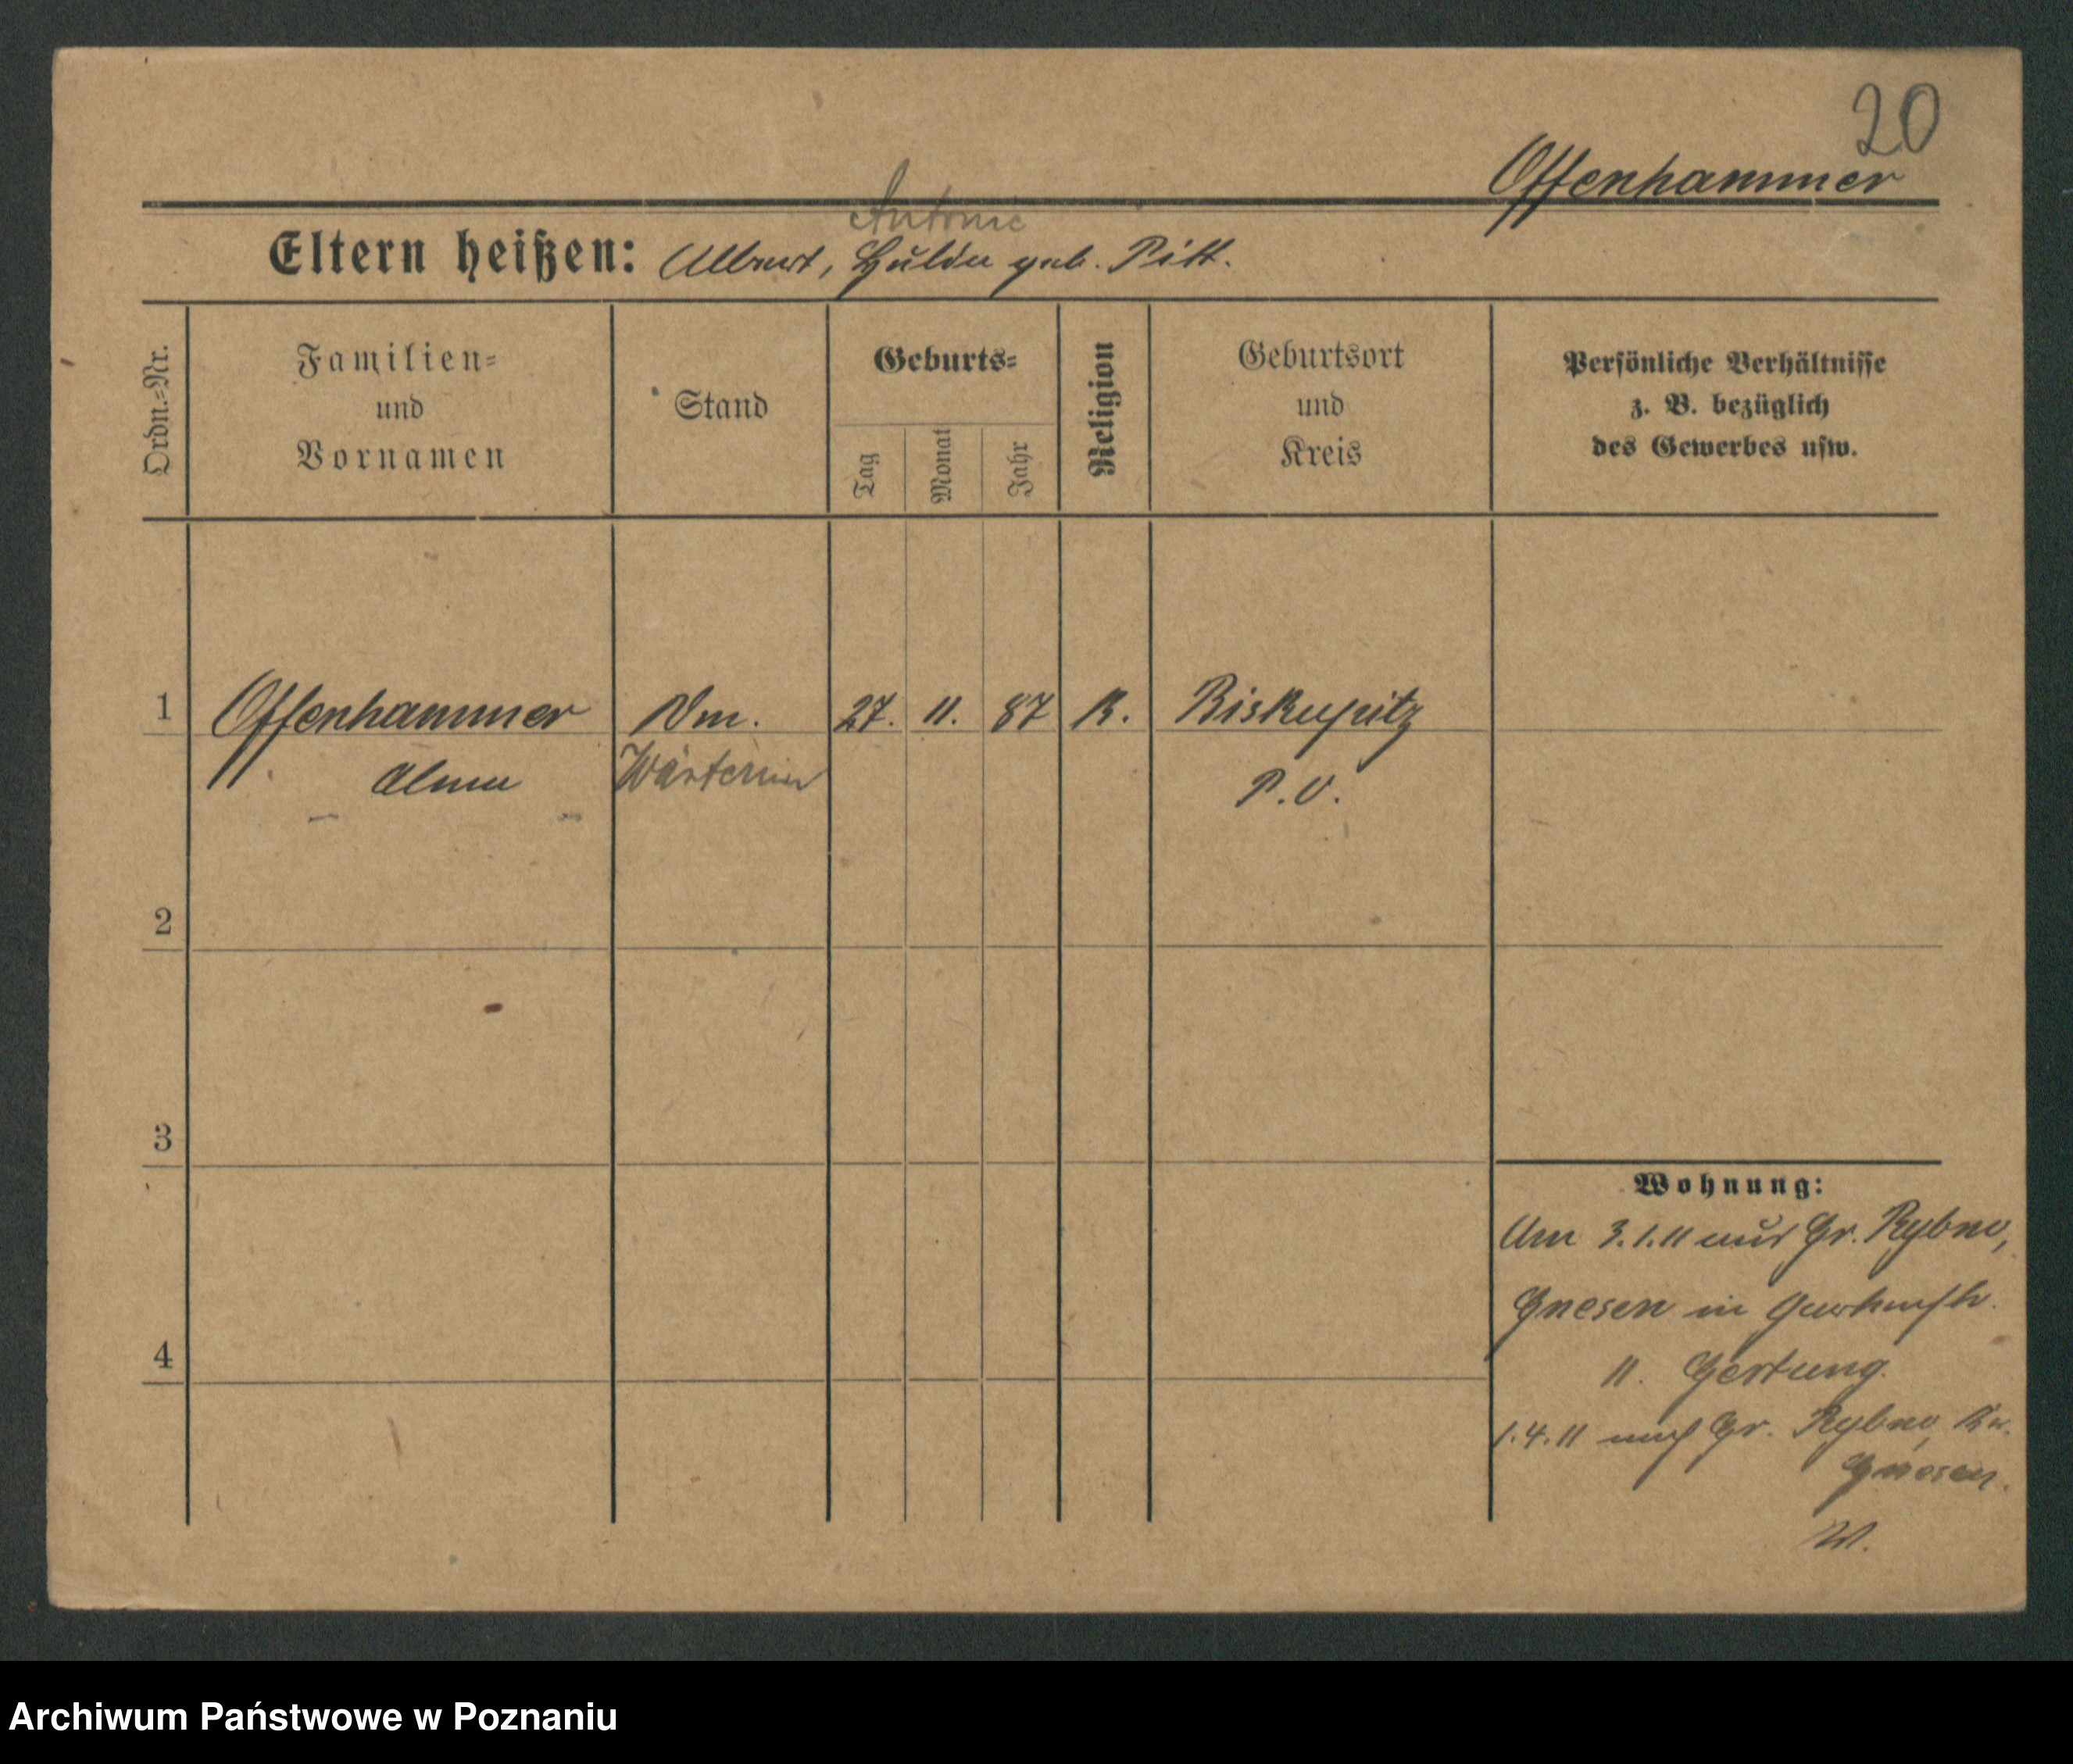 20
Offenhammer
Antonie
Eltern heißen: Albert, Hulda geb. Pitt.
Ordn.-Nr.
Familien-
und
Vornamen
Stand
Geburts-
Tag
Monat
Jahr
Religion
Geburtsort
und
Kreis
Persönliche Verhältnisse
z. B. bezüglich
des Gewerbes usw.
1 Offenhammer 27. 11. 87 K. Biskupitz
Alma Wärterin P. O.
2
3
4
Wohnung:
Am 3.1.11 aus Gr. Rybno,
Gnesen in
11. Gertung.
1.4.11 nach Gr. Rybno, Kr.
Gnesen.
W.
Archiwum Państwowe w Poznaniu